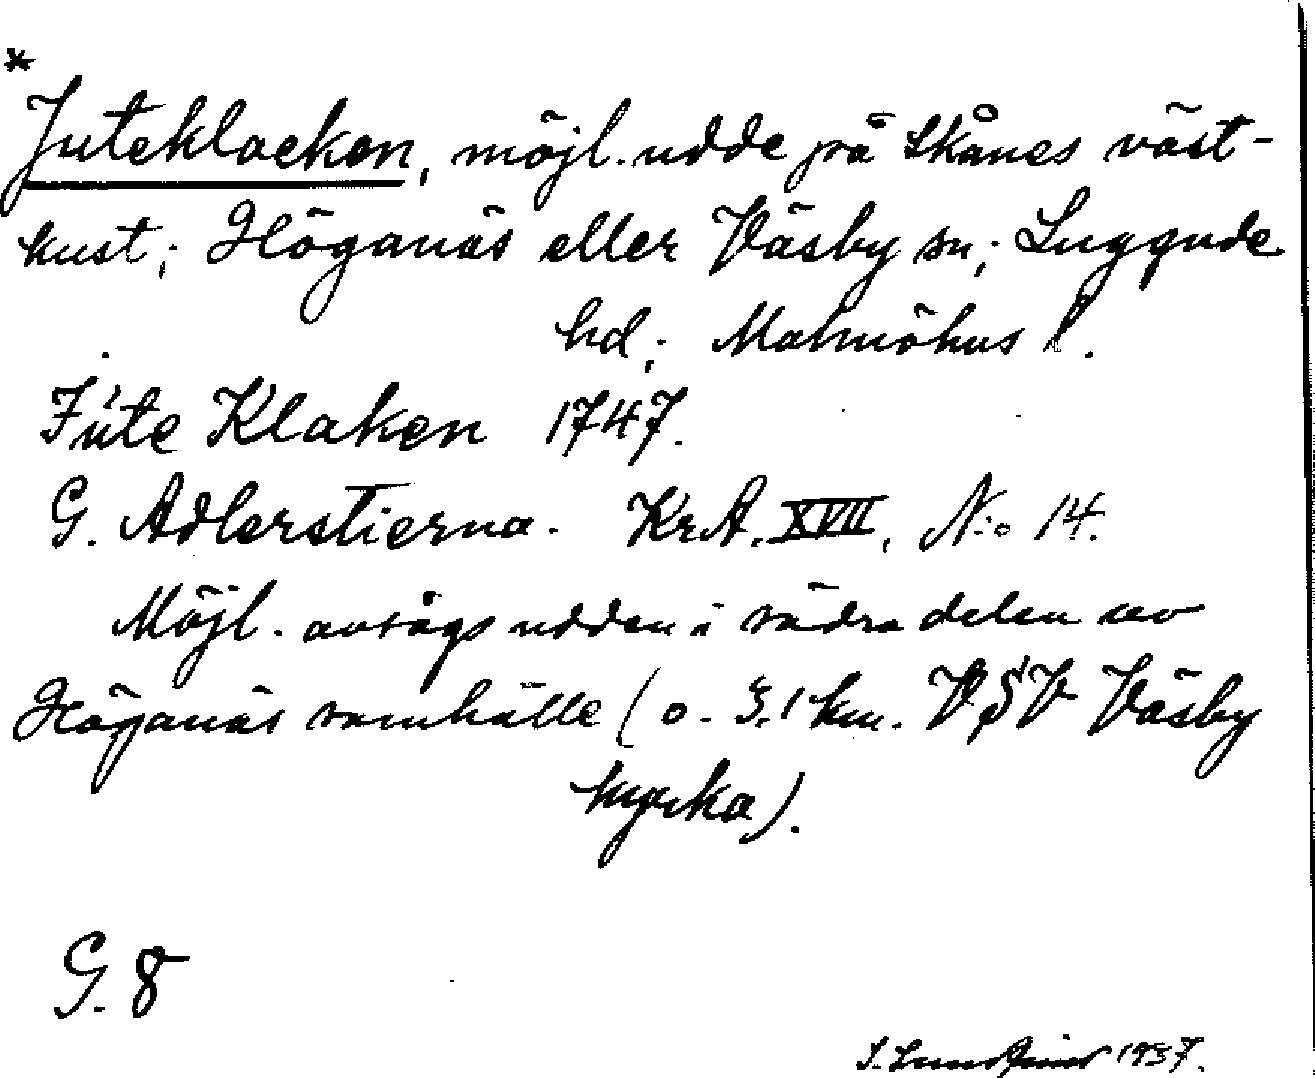 *
Juteklacken, möjl. udde på Skånes väst-
kust; Höganäs eller Väsby sn; Luggude
hd; Malmöhus l.
Jute Klaken 1747.
G. Adlerstierna. KrA. XVII, N:o 14.
Möjl. avsågs udden i södra delen av
Höganäs samhälle (o. 3,1 km. VSV Väsby
kyrka).
G. 8
1937.